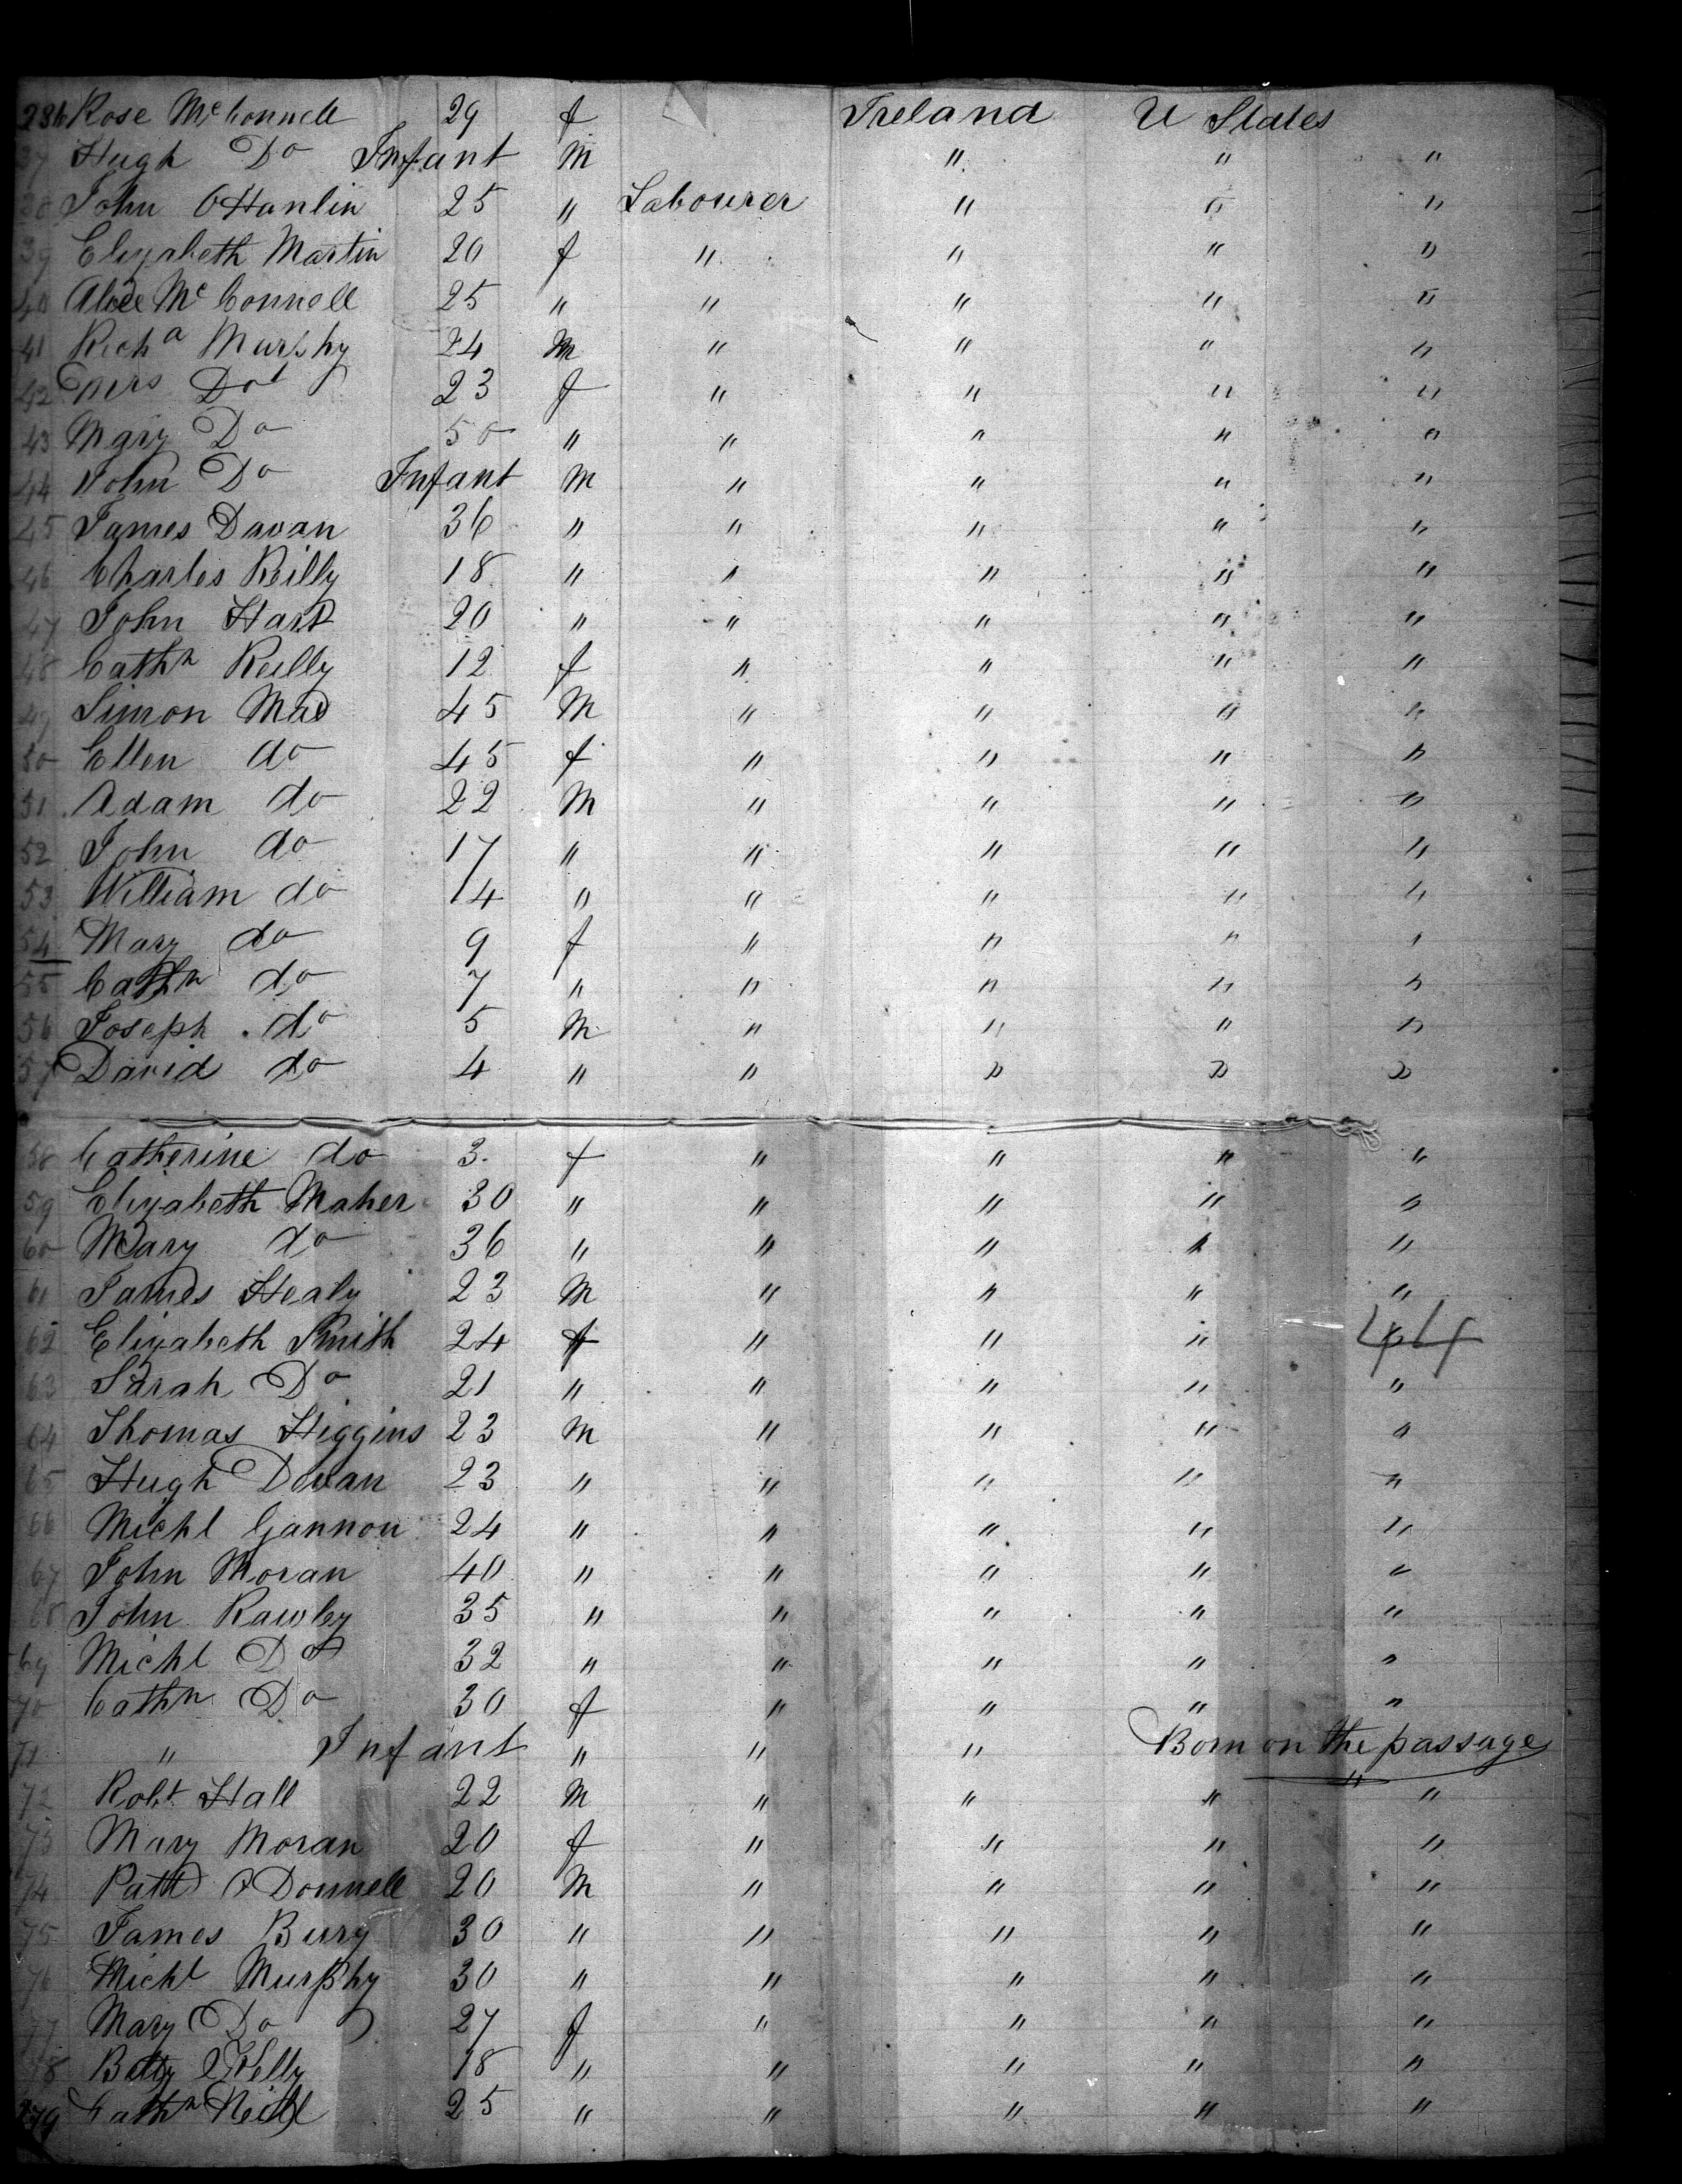 236 Rose McConnell 29 f Ireland U States
37 Hugh Do Infant M " " "
38 John OHanlin 25 " Labourer " " "
39 Elizabeth Martin 20 f " " " "
40 Alice McConnell 25 " " " " "
41 Richd Murphy 24 M " " " "
42 Mrs Do 23 f " " " "
43 Mary Do 50 " " " " "
44 John Do Infant M " " " "
45 James Davan 36 " " " " "
46 Charles Reilly 18 " " " " "
47 John Hart 20 " " " " "
48 Cathn Reilly 12 f " " " "
49 Simon 45 M " " " "
50 Ellen do 45 f " " " "
51 Adam do 22 M " " " "
52 John do 17 " " " " "
53 William do 14 " " " " "
54 Mary do 9 f " " " "
55 Cathn do 7 " " " " "
56 Joseph do 5 M " " " "
57 David do 4 " " " " "
58 Catherine do 3 f " " " "
59 Elizabeth Maher 30 " " " " "
60 Mary do 36 " " " " "
61 James Healy 23 M " " " "
62 Elizabeth Smith 24 f " " "
63 Sarah Do 21 " " " " "
64 Thomas Higgins 23 M " " " "
65 Hugh Davan 23 " " " " "
66 Michl Gannon 24 " " " " "
67 John Moran 40 " " " " "
68 John Rawley 35 " " " " "
69 Michl Do 32 " " " " "
70 Cathn Do 30 f " " " "
71 " Infant " " " Born on the passage
72 Robt Hall 22 M " " " "
73 Mary Moran 20 f " " " "
74 Patt ODonnell 20 M " " " "
75 James Burg 30 " " " " "
76 Michl Murphy 30 " " " " "
77 Mary Do 27 f " " " "
78 Betty Kelly 18 " " " " "
279 Cathn 25 " " " " "